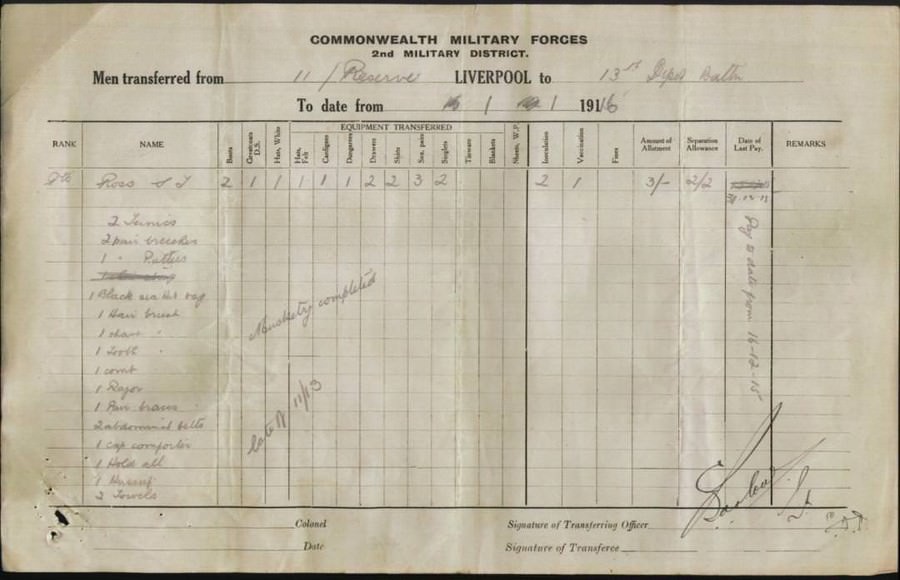 COMMONWEALTH MILITARY FORCES
2ND MILITARY DISTRICT.
Men transferred from 11/Reserve LIVERPOOL to 13th Depot Battn
To date from 1 1916
RANK NAME EQUIPMENT TRANSFERRED REMARKS
Boots Greatcoats D.S. Hats, White Hats, Felt Cardigans Dungarees Drawers Shirts Sox, pairs Singlets Tinware Blankets Sheets, W.P. Inoculation Vaccination Fines Amount of Allotment Separation Allowance Date of Last Pay.
Pte Ross S J 2 1 1 1 1 1 2 2 3 2 2 1 3/- 2/2
2 Tunics
2 pair breeches
1 " Puttees
1 Black sea kit bag
1 Hair brush
1 shave "
1 Tooth "
1 comb
1 Razor
1 Pair braces
2 abdominal belts
1 cap comforter
1 Hold all
1 Hussif
2 Towels
Musketry completed
late of 11/13
Pay to date from 16-12-15
Colonel Signature of Transferring Officer
Date Signature of Transferee